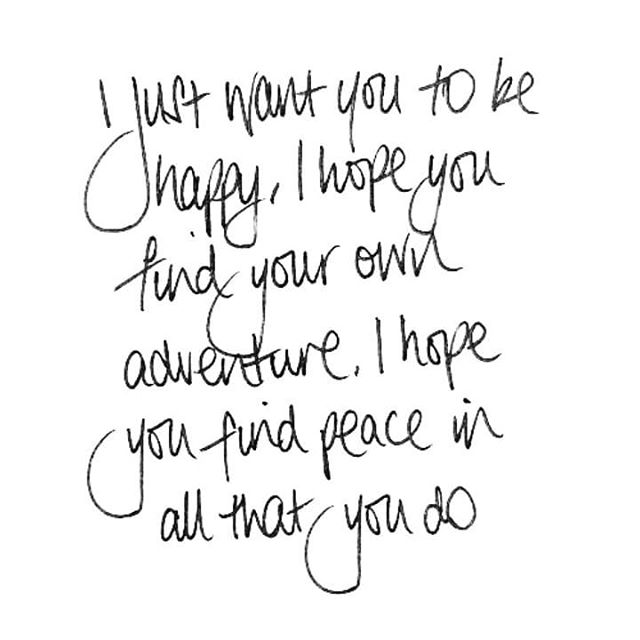 I just want you to be
happy. I hope you
find your own
adventure. I hope
you find peace in
all that you do